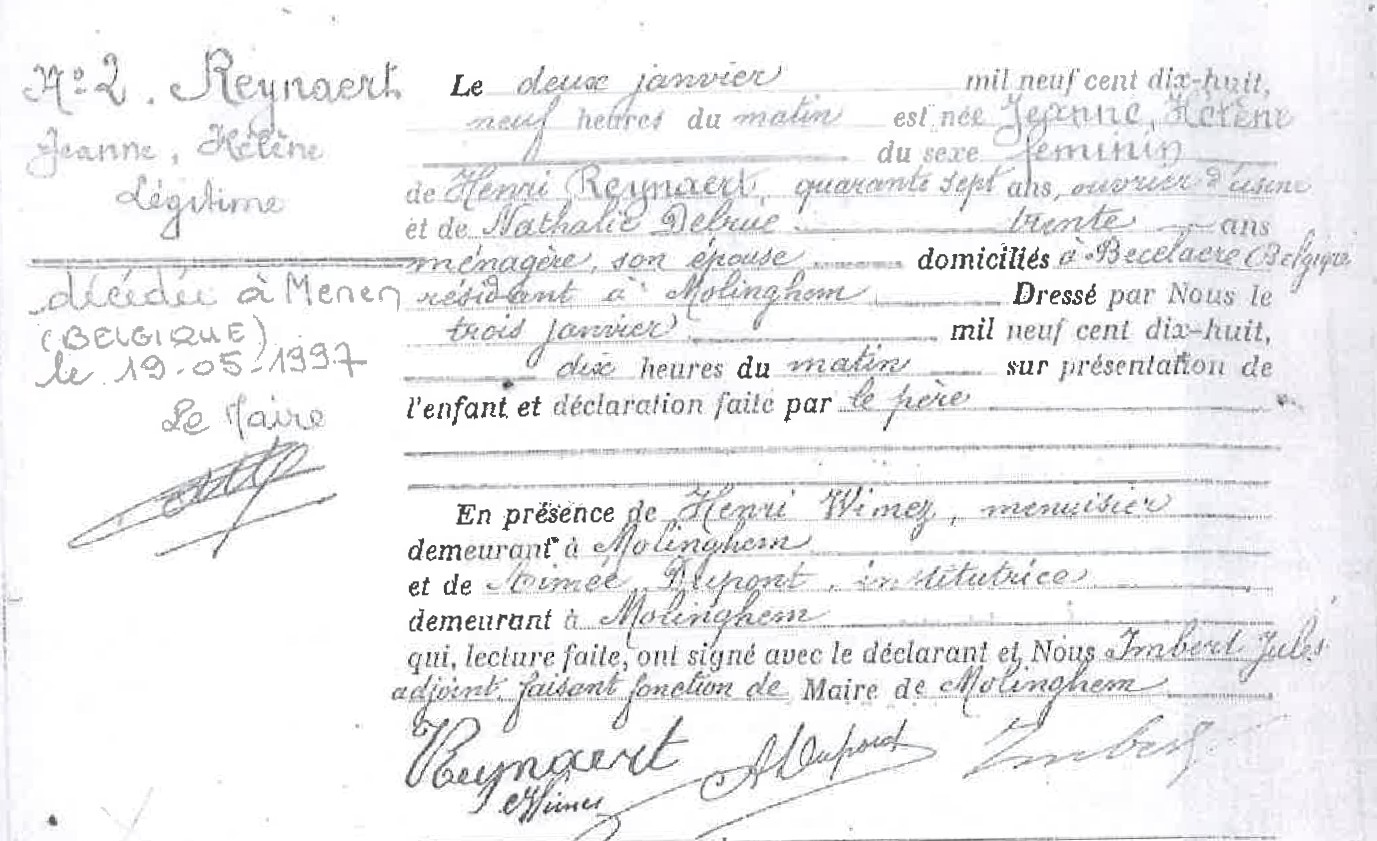 N° 2. Reynaert
Jeanne, Hélène
Légitime
décédée à Menen
(BELGIQUE)
le 19-05-1997
Le Maire
Le deux janvier mil neuf cent dix-huit,
neuf heures du matin est née Jeanne, Hélène
du sexe féminin
de Henri Reynaert, quarante sept ans, ouvrier d'usine
et de Nathalie Delrue trente ans
ménagère, son épouse domiciliés à Becelaere (Belgique)
résidant à Molinghem Dressé par Nous le
trois janvier mil neuf cent dix-huit,
dix heures du matin sur présentation de
l'enfant et déclaration faite par le père
En présence de Henri Wimez, menuisier
demeurant à Molinghem
et de Aimée Dupont, institutrice
demeurant à Molinghem
qui, lecture faite, ont signé avec le déclarant et Nous Imbert Jules
adjoint faisant fonction de Maire de Molinghem
Reynaert ADupont Imbert
HWimez